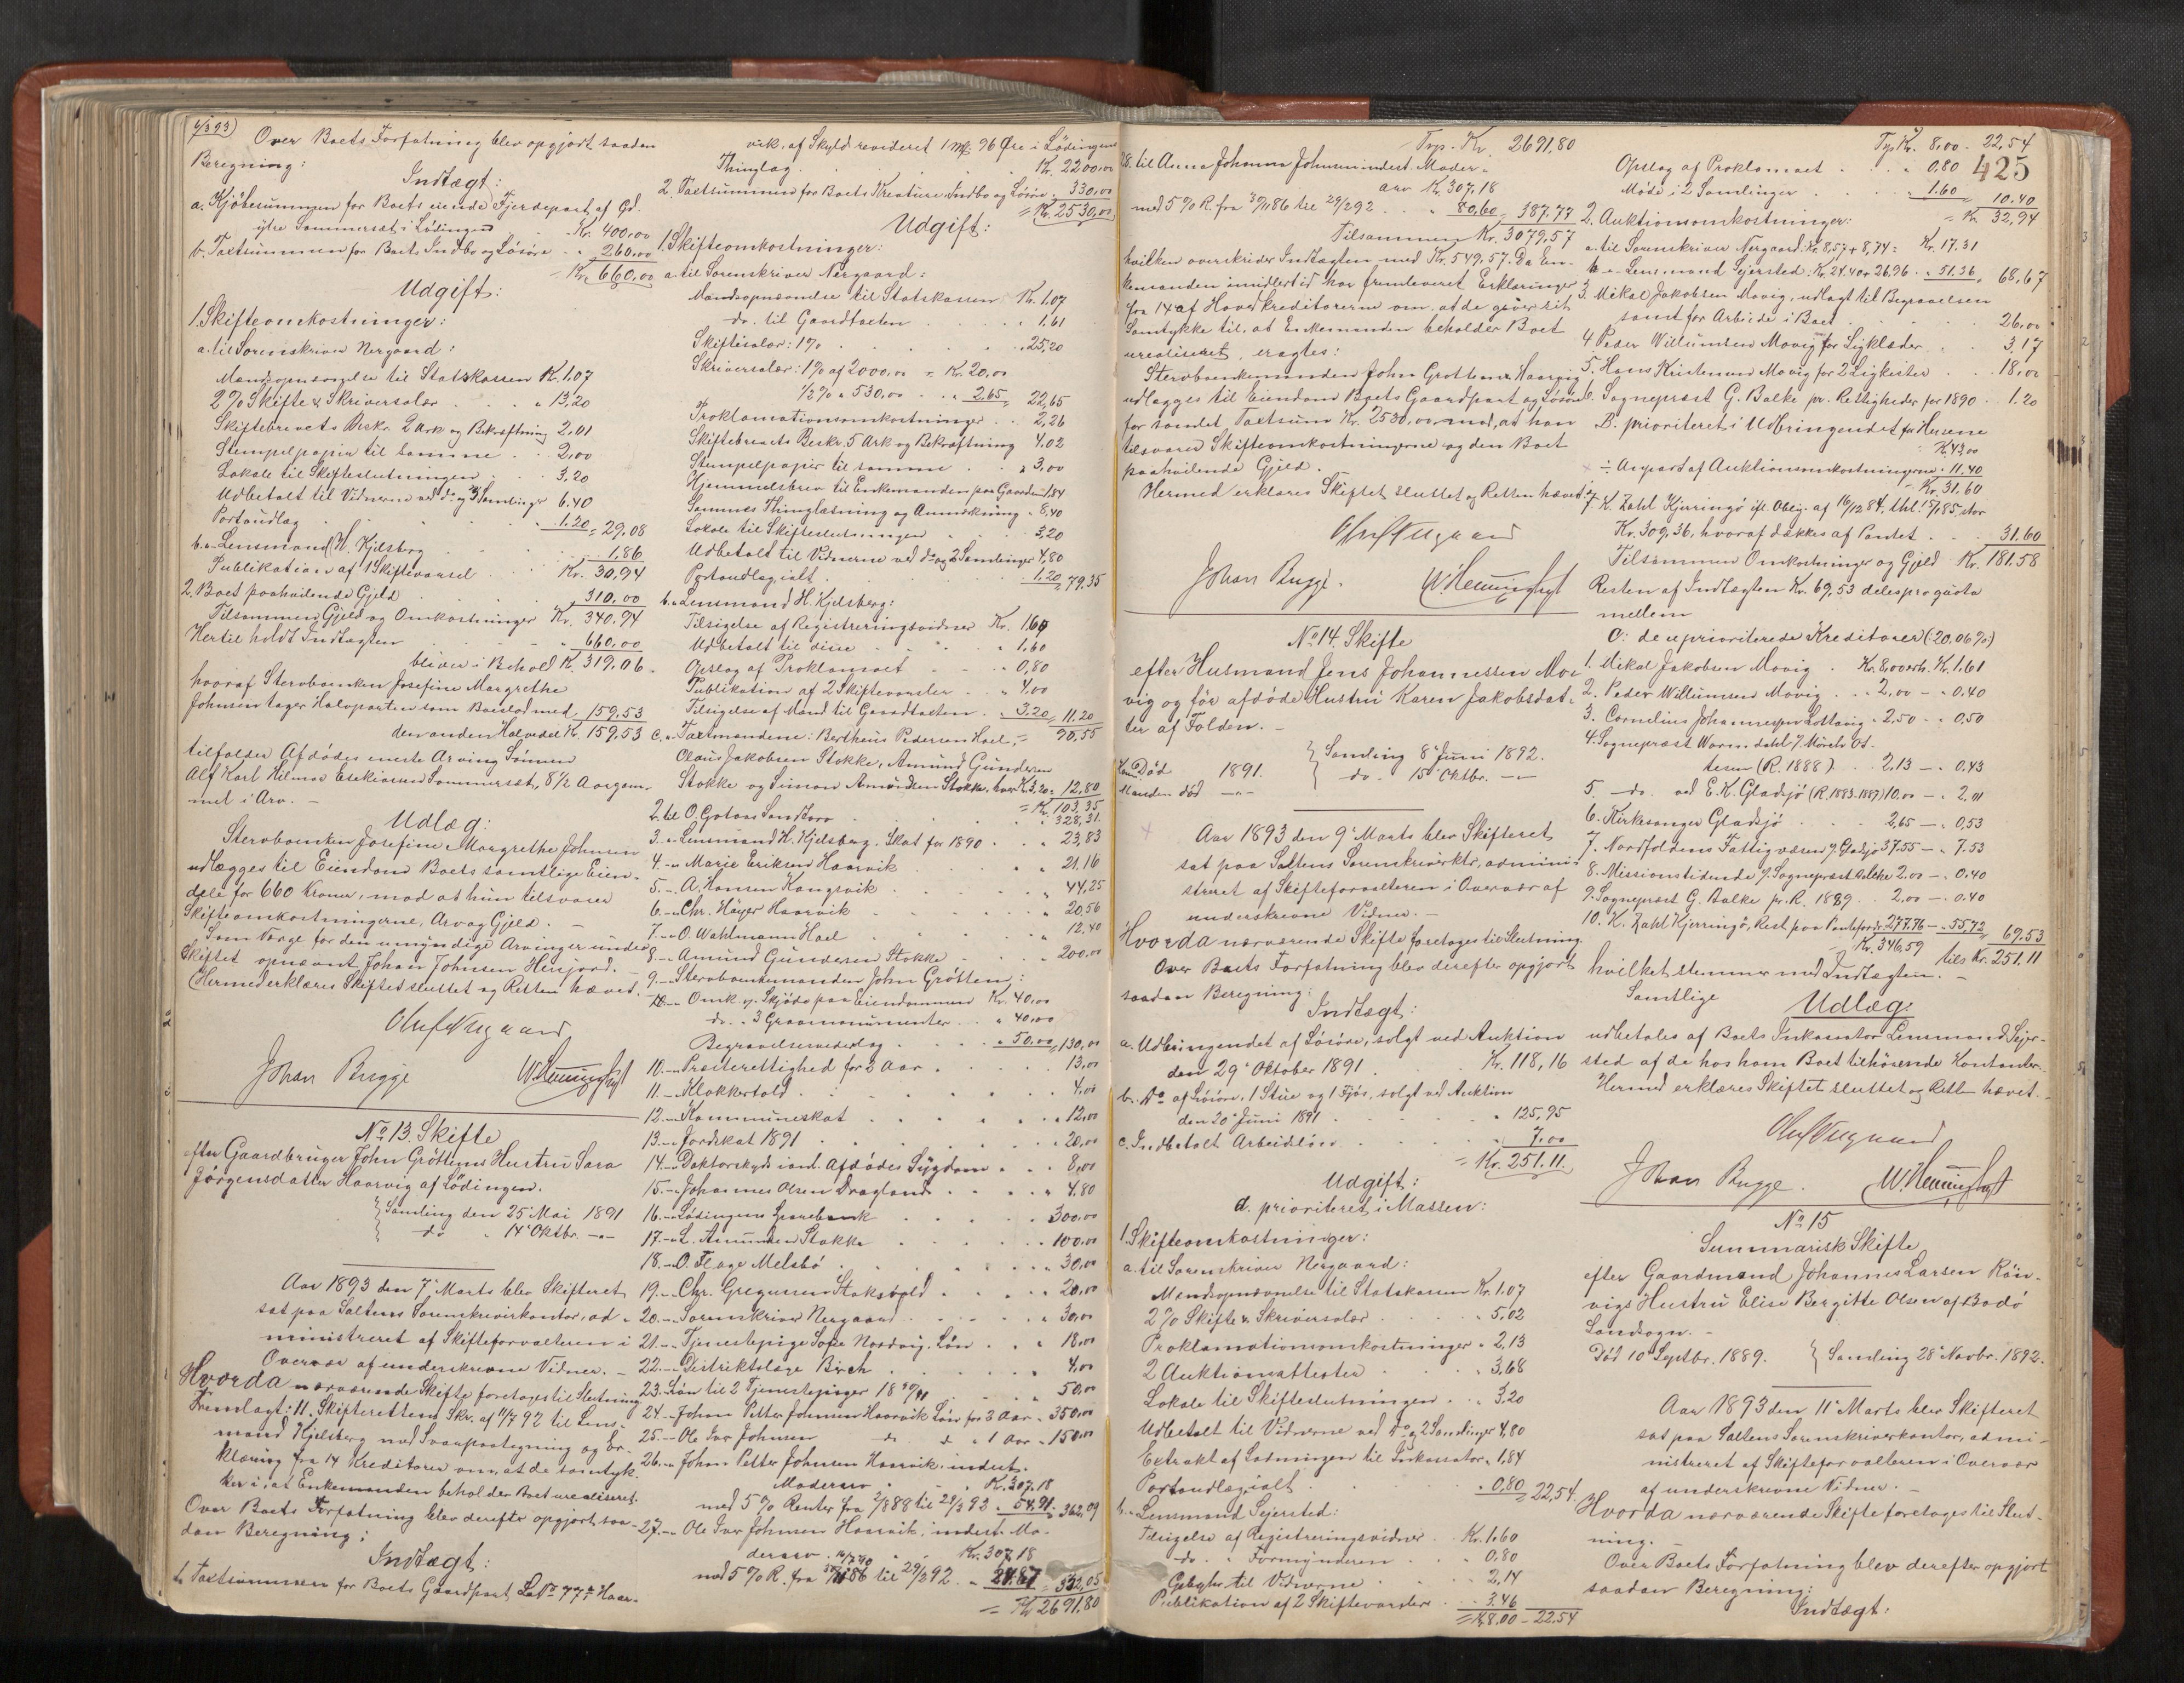 6/3 93)
Over Boets Forfatning blev opgjørt saadan
Beregning:
Indtægt:
a. Kjøbesummen for Boets eiende Fjerdepart af Gd.
ytre Sommerset i Lødingen Kr. 400,00
b. Taxtsummen for Boets Indbo og Løsøre " 260,00
= Kr. 660,00
Udgift:
1. Skifteomkostninger:
a. til Sorenskriver Nergaard:
Mandsopnævnelse til Statskassen Kr. 1,07
2 % Skifte & Skriversalær " 13,20
Skiftebrevets Beskr. 2 Ark og Bekræftning 2,01
Stempelpapir til samme 2,00
Lokale til Skifteslutningen 3,20
Udbetalt til Vidnerne ved do og 3 Samlinger 6,40
Portoudlæg 1,20 = 29,08
b. " Lensmand H. Kjelsberg
Publikation af 1 Skiftevarsel 1,86
Kr. 30,94
2. Boet paahvilende Gjeld 310,00
Tilsammen Gjeld og Omkostninger Kr. 340,94
Hertil holdt Indtægten " 660,00
bliver i Behold Kr. 319,06
hvoraf Stervboenken Josefine Margrethe
Johnsen tager Halvparten som Boeslod med 159,53
den anden Halvedel Kr. 159,53
tilfalder Afdødes eneste Arving Sønnen
Alf Karl Hilmar Esekiassen Sommerset, 8 1/2 Aar gam-
mel i Arv. –
Udlæg:
Stervboenken Josefine Margrethe Johnsen
udlægges til Eiendom Boets samtlige Eien-
dele for 660 Kroner, mod at hun tilsvarer
Skifteomkostningerne, Arv og Gjeld. –
Som Værge for den umyndige Arving er under
Skiftet opnævnt Johan Johnsen Hersjord. –
Hermed erklæres Skiftet sluttet og Retten hævet.
Oluf Nergaard
Johan Bugge W. Henningholt
No 13. Skifte
efter Gaardbruger John Grøttems Hustru Sara
Jørgensdatter Haarvig af Lødingen.
Samling den 25 Mai 1891
do " 14 Oktbr. – " –
Aar 1893 den 7' Marts blev Skifteret
sat paa Saltens Sorenskriverkontor, ad-
ministreret af Skifteforvalteren i
Overvær af underskrevne Vidner. –
Hvorda nærværende Skifte foretoges til Slutning
Fremlagt: 11. Skifterettens Skr. af 11/7 92 til Lens-
mand Kjelsberg med Svarpaategning og Er-
klæring fra 14 Kreditorer om, at de samtyk-
ker i, at Enkemanden beholder Boet urealiseret.
Over Boets Forfatning blev derefter opgjort saa-
dan Beregning:
Indtægt:
1. Taxtsummen for Boets Gaardpart L. No 77 Haar-
vik, af Skyld revideret 1 Mk. 96 Øre i Lødingens
Thinglag. Kr. 2200,00
2. Taxtsummen for Boets Kreature, Indbo og Løsøre " 330,00
= Kr. 2530,00
Udgift:
1. Skifteomkostninger:
a. til Sorenskriver Nergaard:
Mandsopnævnelse til Statskassen Kr. 1,07
do. til Gaardtaxten " 1,61
Skiftesalær: 1 % " 25,20
Skriversalær: 1 % af 2000,00 = Kr. 20,00
1/2 % " 530,00 " 2,65 = 22,65
Proklamationsomkostninger 2,26
Skiftebrevets Beskr. 5 Ark og Bekræftning 4,02
Stempelpapir til samme " 3,00
Hjemmelsbrev til Enkemanden paa Gaarden 1,84
Sammes Thinglæsning og Anmerkning " 8,40
Lokale til Skifteslutningen 3,20
Udbetalt til Vidnerne ved do og 2 Samlinger 4,80
Portoudlæg ialt 1,20 = 79,35
b. " Lensmand H. Kjelsberg:
Tilsigelse af Registreringsvidner Kr. 1,60
Udbetalt til disse " 1,60
Opslag af Proklamaet " 0,80
Publikation af 2 Skiftevarsler " 4,00
Tilsigelse af Mænd til Gaardtaxten " 3,20 = 11,20
= 90,55
c. " Taxtmændene: Bertheus Pedersen Hoel,
Claus Jakobsen Stokke, Amund Gundersen
Stokke og Simon Amundsen Stokke, hver Kr. 3,20 = 12,80
= Kr. 103,35
2. til O. Gotaas Sandtorv " 328,31
3. " Lensmand H. Kjelsberg. Skat for 1890 " 23,83
4. " Marie Eriksen Haarvik " 21,16
5. " A. Hansen Kongsvik " 44,25
6. " Chr. Høyer Haarvik " 20,56
7. " O Wahlmann Hoel " 12,40
8. " Amund Gundersen Stokke " 200,00
9. " Stervboenkemanden John Grøttem:
Omk. v. Skjøde paa Eiendommen Kr. 40,00
do. " 3 Gravmonumenter " 40,00
Begravelsesvederlag " 50,00 = 130,00
10. " Presterettighed for 2 Aar 13,00
11. " Klokkertold 4,00
12. " Kommuneskat " 12,00
13. " Jordskat 1891 " 20,00
14. " Doktorskyds i anl. Afdødes Sygdom " 8,00
15. " Johannes Olsen Dragland " 4,80
16. " Lødingens Sparebank 300,00
17. " L. Amundsen Stokke " 100,00
18. " O. Flage Melsbø " 30,00
19. " Chr. Gregersen Stoksvold " 20,00
20. " Sorenskriver Nergaard " 30,00
21. " Tjenestepige Sofie Nordvig. Løn " 18,00
22. " Distriktslæge Birch 4,00
23. Løn til 2 Tjenestepiger 18 90/91 50,00
24. " Johan Petter Johnsen Haarvik Løn for 2 Aar " 350,00
25. " Ole Ivar Johnsen do " 1 Aar " 150,00
26. " Johan Petter Johnsen Haarvik, indest.
Moderarv Kr. 307,18
med 5 % Renter fra 2/8 88 til 29/2 92 " 54,91 = 362,09
27. " Ole Ivar Johnsen Haarvik, indest. Mo-
derarv Kr. 307,18
med 5 % R. fra til 29/2 92 " 24,87 = 332,05
= Kr 2691,80
Trp. Kr. 2691,80
28. til Anna Johanna Johnsen indest. Moder-
arv Kr. 307,18
med 5 % R. fra 30/11 86 til 29/2 92 " 80,60 = 387,77
Tilsammen Kr. 3079,57
hvilken overskrider Indtægten med Kr. 549,57. Da En-
kemanden imidlertid har fremleveret Erklæringer
fra 14 af Hovedkreditorerne om, at de giver sit
Samtykke til, at Enkemanden beholder Boet
urealiseret, eragtes:
Stervboenkemanden John Grøttem Haarvig
udlægges til Eiendom Boets Gaardpart og Løsøre
for samlet Taxtsum Kr. 2530,00 mod, at han
tilsvarer Skifteomkostningerne og den Boet
paahvilende Gjeld.
Hermed erklæres Skiftet sluttet og Retten hævet.
Oluf Nergaard
Johan Bugge. W. Henningholt
No 14. Skifte
efter Husmand Jens Johannessen Mo-
vig og før afdøde Hustru Karen Jakobsdat-
ter af Folden. –
Konen Død 1891.
Manden død – " –
Samling 8' Juni 1892.
do. 15' Oktbr. – " –
Aar 1893 den 9' Marts blev Skifteret
sat paa Saltens Sorenskriverktr., admini-
streret af Skifteforvalteren i Overvær af
underskrevne Vidner. –
Hvorda nærværende Skifte foretoges til Slutning.
Over Boets Forfatning blev derefter opgjort
saadan Beregning:
Indtægt:
a. Udbringendet af Løsøre, solgt ved Auktion
den 29' Oktober 1891 Kr. 118,16
b. Do af Løsøre, 1 Stue og 1 Fjøs, solgt ved Auktion
den 20' Juni 1891 " 125,95
c. Indbetalt Arbeidsløn " 7,00
= Kr. 251,11.
Udgift:
A. prioriteret i Massen:
1. Skifteomkostninger:
a. til Sorenskriver Nergaard:
Mandsopnævnelse til Statskassen Kr. 1,07
2 % Skifte & Skriversalær " 5,02
Proklamationsomkostninger " 2,13
2 Auktionsattester " 3,68
Lokale til Skifteslutningen " 3,20
Udbetalt til Vidnerne ved do og 2 Samlinger 4,80
Extrakt af Lodningen til Inkassator " 1,84
Portoudlæg ialt " 0,80 = 22,54.
b. " Lensmand Sejersted:
Tilsigelse af Registreringsvidner Kr. 1,60
do. " Formynderen " 0,80
Gebyhr til Vidnerne " 2,14
Publikation af 2 Skiftevarsler " 3,46
= Kr. 8,00 – 22,54
Trp Kr. 8,00 – 22,54
425
Opslag af Proklamaet " 0,80
Møde i 2 Samlinger " 1,60 10,40
= Kr. 32,94
2. Auktionsomkostninger:
a. til Sorenskriver Nergaard: Kr 8,57 + 8,74 = Kr. 17,31
b. " Lensmand Sejersted: Kr. 24,40 + 26,96 " 51,36 = 68,67
3. Mikal Jakobsen Movig, udlagt til Begravelsen
samt for Arbeide i Boet 26,00
4. Peder Willumsen Movig for Ligklæder 3,17
5. Hans Kristensen Movig for 2 Ligkister 18,00
6. Sogneprest G. Balke pr. Rettigheder for 1890 1.20
B. prioriteret i Udbringendet for Husene
Kr. 43,00
÷ Anpart af Auktionsomkostningerne " 11,40
Kr. 31,60
7. K. Zahl Kjerringø ifl. Oblig. af 16/12 84, thl. 15/1 85, stor
Kr. 309,36, hvoraf dækkes af Pantet 31.60
Tilsammen Omkostninger og Gjeld Kr. 181.58
Resten af Indtægten Kr. 69,53 deles pro quota
mellem
C: de uprioriterede Kreditorer (20,06 %)
1. Mikal Jakobsen Movig Kr. 8,00 erh. Kr. 1.61
2. Peder Willumsen Movig " 2,00 – " 0.40
3. Cornelius Johannesen Lottavig " 2,50 " 0,50
4. Sogneprest Warmdahl v. Mörch Ot-
tesen (R. 1888) 2.13 – " 0.43
5. – do. ved E. K. Gladsjö (R. 1883-1887) 10,00 – " 2,01
6. Kirkesanger Gladsjö 2,65 – " 0,53
7. Nordfoldens Fattigvæsen v. Gladsjö 37.55 – " 7.53
8. Missionstidende v. Sogneprest Balke 2,00 – " 0.40
9. Sogneprest G. Balke pr. R. 1889 2,00 – " 0.40
10. K. Zahl Kjerringø, Rest paa Pantefordr. 277.76 – " 55,72 = 69.53
Kr. 346,59 tils. Kr. 251.11
hvilket stemmer med Indtægten. –
Udlæg:
Samtlige
udbetales af Boets Inkassator Lensmand Sejer-
sted af de hos ham Boet tilhørende Kontanter.
Hermed erklæres Skiftet sluttet og Retten hævet. –
Oluf Nergaard
Johan Bugge. W. Henningholt
No 15
Summarisk Skifte
efter Gaardmand Johannes Larsen Rön-
vigs Hustru Elise Bergitte Olsen af Bodø
Landsogn. –
Død 10' Septbr. 1889. Samling 28' Novbr. 1892.
Aar 1893 den 11' Marts blev Skifteret
sat paa Saltens Sorenskriverkontor, admi-
nistreret af Skifteforvalteren i Overvær
af underskrevne Vidner. –
Hvorda nærværende Skifte foretoges til Slut-
ning. –
Over Boets Forfatning blev derefter opgjort
saadan Beregning:
Indtægt: